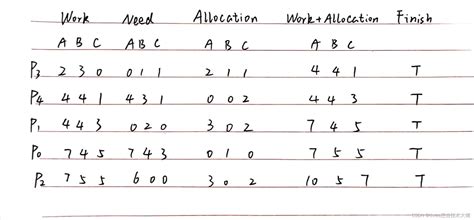 Work Need Allocation Work+Allocation Finish
A B C A B C A B C A B C
P3 2 3 0 0 1 1 2 1 1 4 4 1 T
P4 4 4 1 4 3 1 0 0 2 4 4 3 T
P1 4 4 3 0 2 0 3 0 2 7 4 5 T
P0 7 4 5 7 4 3 0 1 0 7 5 5 T
P2 7 5 5 6 0 0 3 0 2 10 5 7 T